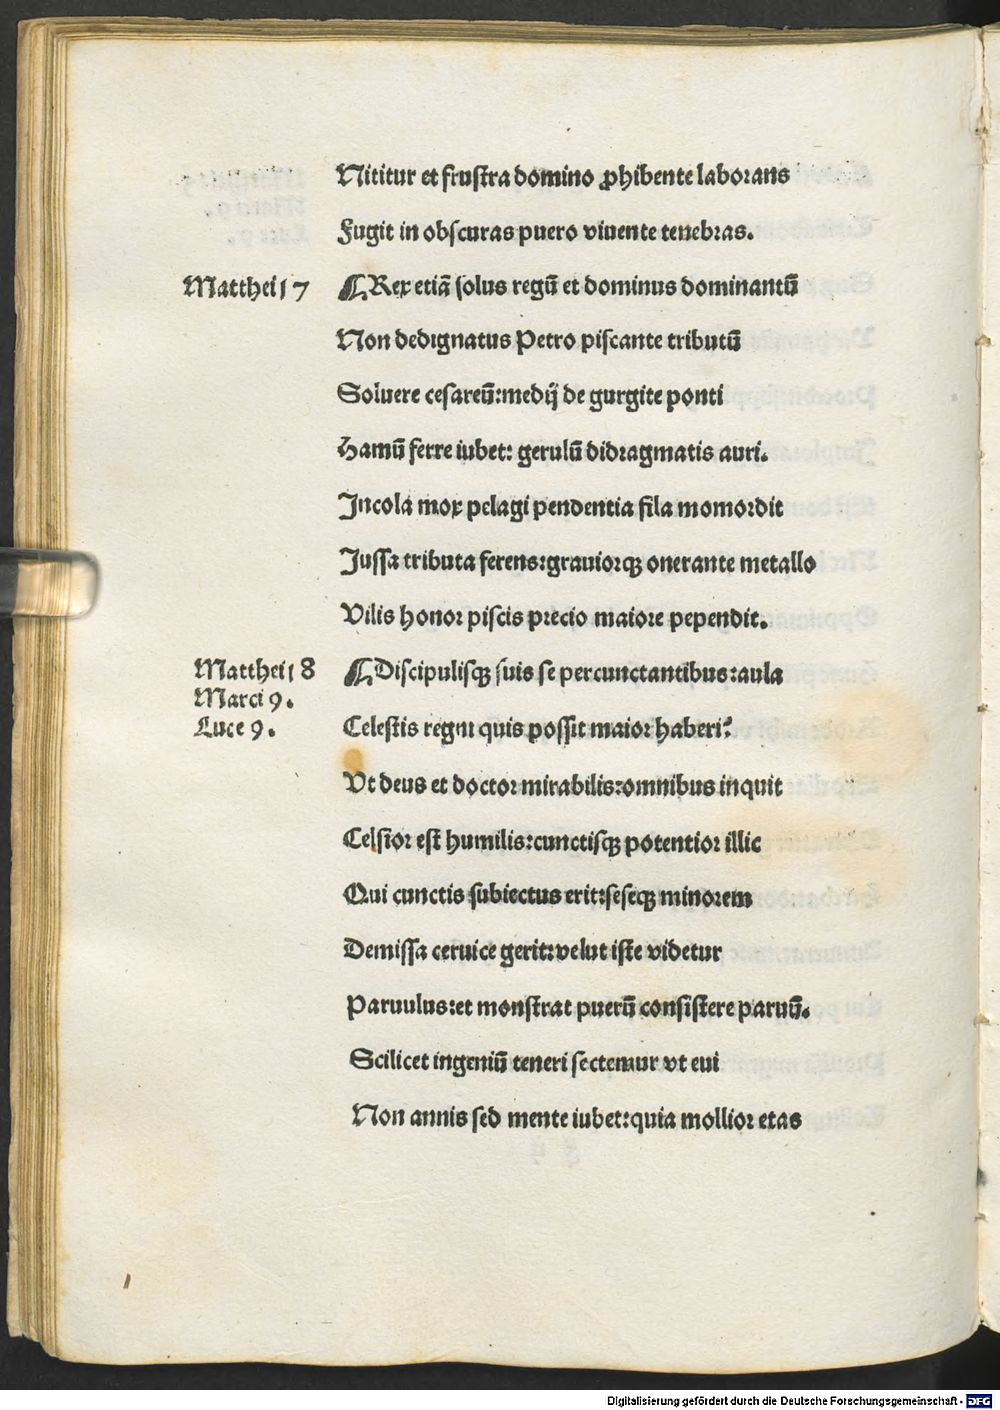 Nititur et frustra domino ꝓhibente laborans
Fugit in obscuras puero viuente tenebras.
Matthei 17
¶ Rex etiā solus regū et dominus dominantū
Non dedignatus Petro piscante tributū
Soluere cesareū: medij de gurgite ponti
Hamū ferre iubet: gerulū didragmatis auri.
Incola mox pelagi pendentia fila momordit
Jussa tributa ferens: grauiorqꝫ onerante metallo
Vilis honor piscis precio maiore pependit.
Matthei 18
Marci 9.
Luce 9.
¶ Discipulisqꝫ suis se percunctantibus: aula
Celestis regni quis possit maior haberi?
Vt deus et doctor mirabilis: omnibus inquit
Celsior est humilis: cunctisqꝫ potentior illic
Qui cunctis subiectus erit: seseqꝫ minorem
Demissa ceruice gerit: velut iste videtur
Paruulus: et monstrat puerū consistere paruū.
Scilicet ingeniū teneri sectemur vt eui
Non annis sed mente iubet: quia mollior etas
Digitalisierung gefördert durch die Deutsche Forschungsgemeinschaft - DFG